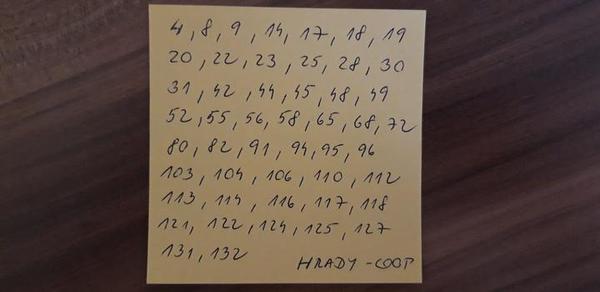 4, 8, 9, 14, 17, 18, 19
20, 22, 23, 25, 28, 30
31, 42, 44, 45, 48, 49
52, 55, 56, 58, 65, 68, 72
80, 82, 91, 94, 95, 96
103, 104, 106, 110, 112
113, 114, 116, 117, 118
121, 122, 124, 125, 127
131, 132 HRADY - COOP